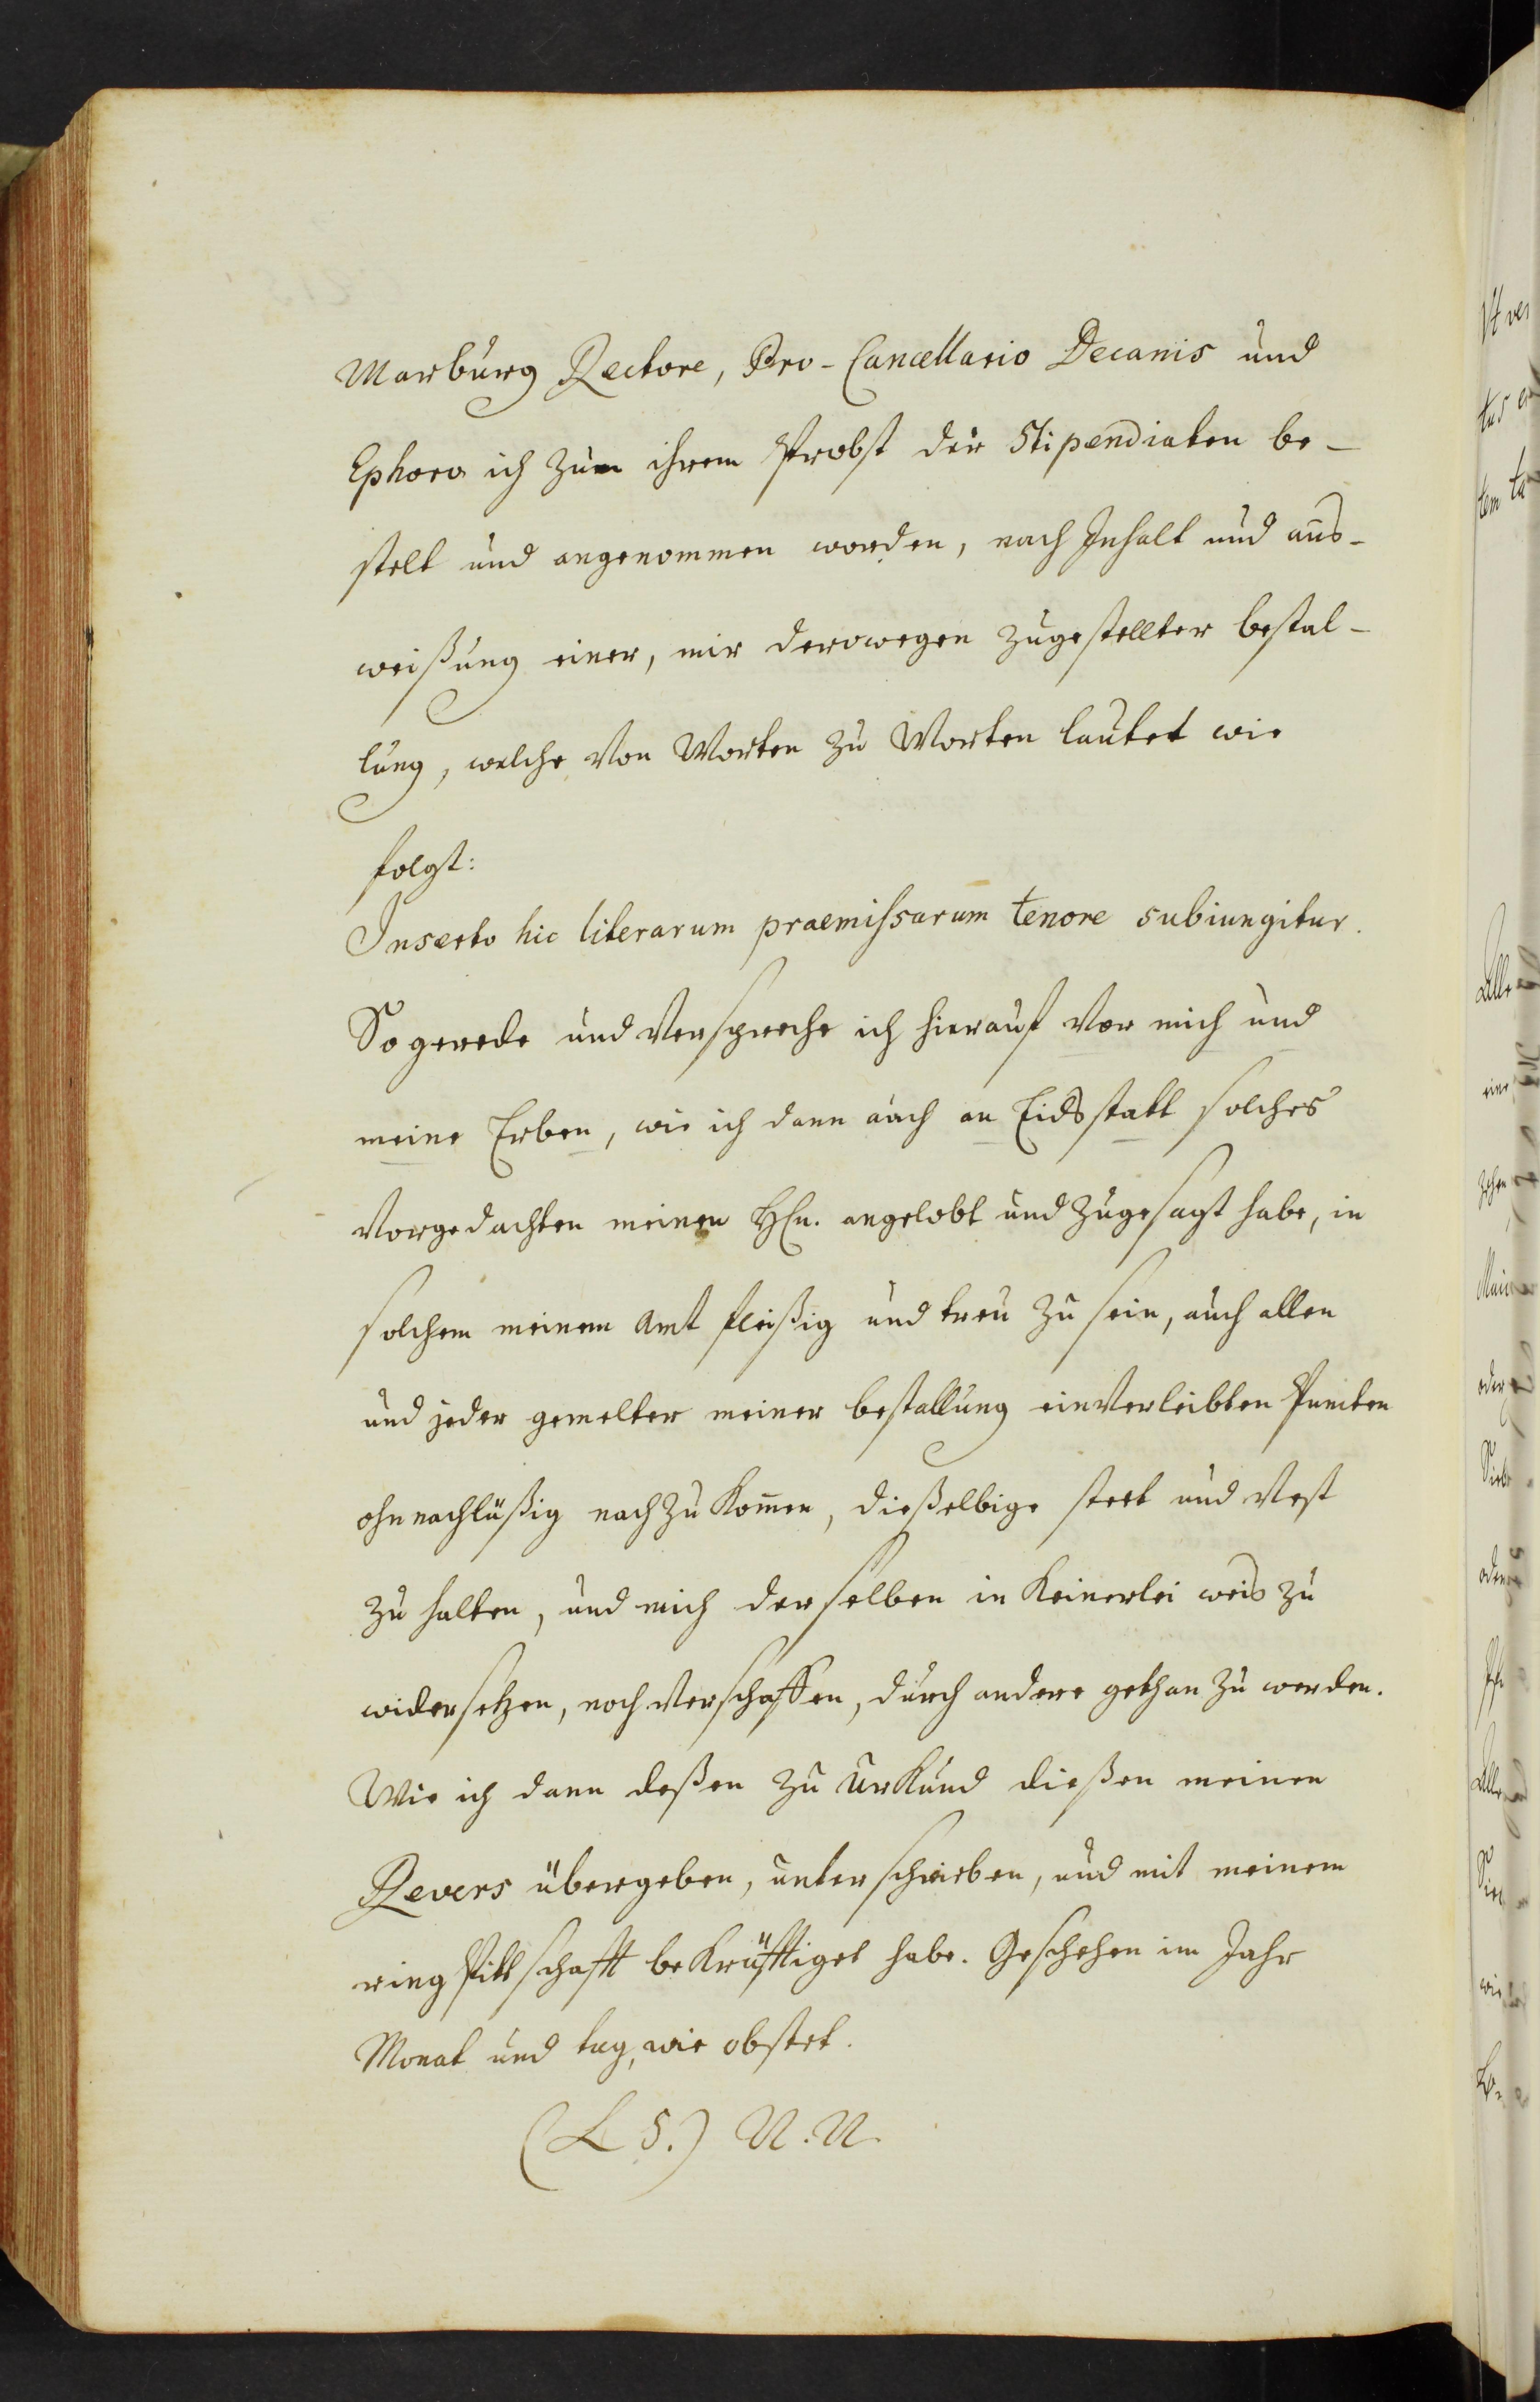 Marburg Rectore, Pro-Cancellario Decanis und
Ephoro ich zum ihrem Probst der Stipendiaten be-
stelt und angenommen worden, nach Inhalt und aus-
weißung einer, mir derowegen zugestellter bestal-
lung, welche von Worten zu Worten lautet wie
folgt:
Inserto hic literarum praemissarum tenore subiungitur.
So gerede und verspreche ich hierauf vor mich und
meine Erben, wie ich dann auch an Eidsstatt solches
vorgedachten meinen Hln. angelobt und zugesagt habe, in
solchem meinem amt fleißig und treu zu sein, auch allen
und jeder gemelter meiner bestallung einverleibten Puncten
ohnnachläßig nachzukom̄en, dießelbige stett und vest
zu halten, und mich derselben in keinerlei weis zu
widersetzen, noch verschaffen, durch andere gethan zu werden.
Wie ich dann deßen zu urkund dießen meinen
Revers übergeben, unterschrieben, und mit meinem
ring Pittschafft bekräfftiget habe. Geschehen im Jahr
Monat und tag, wie obstet.
(L S.) N. N.